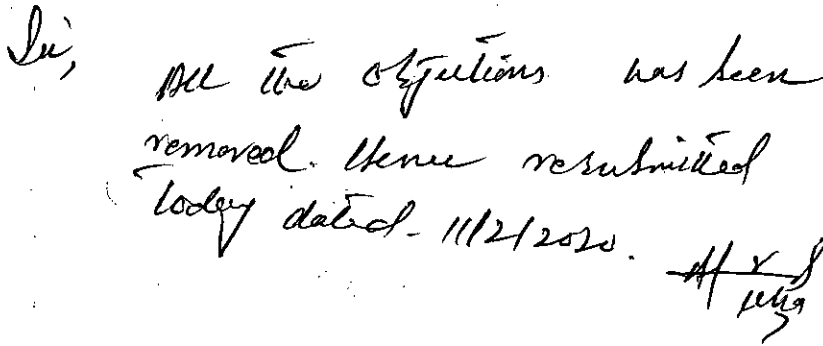 Sir,
All the objections has been
removed. Hence resubmitted
today dated - 11/2/2020.